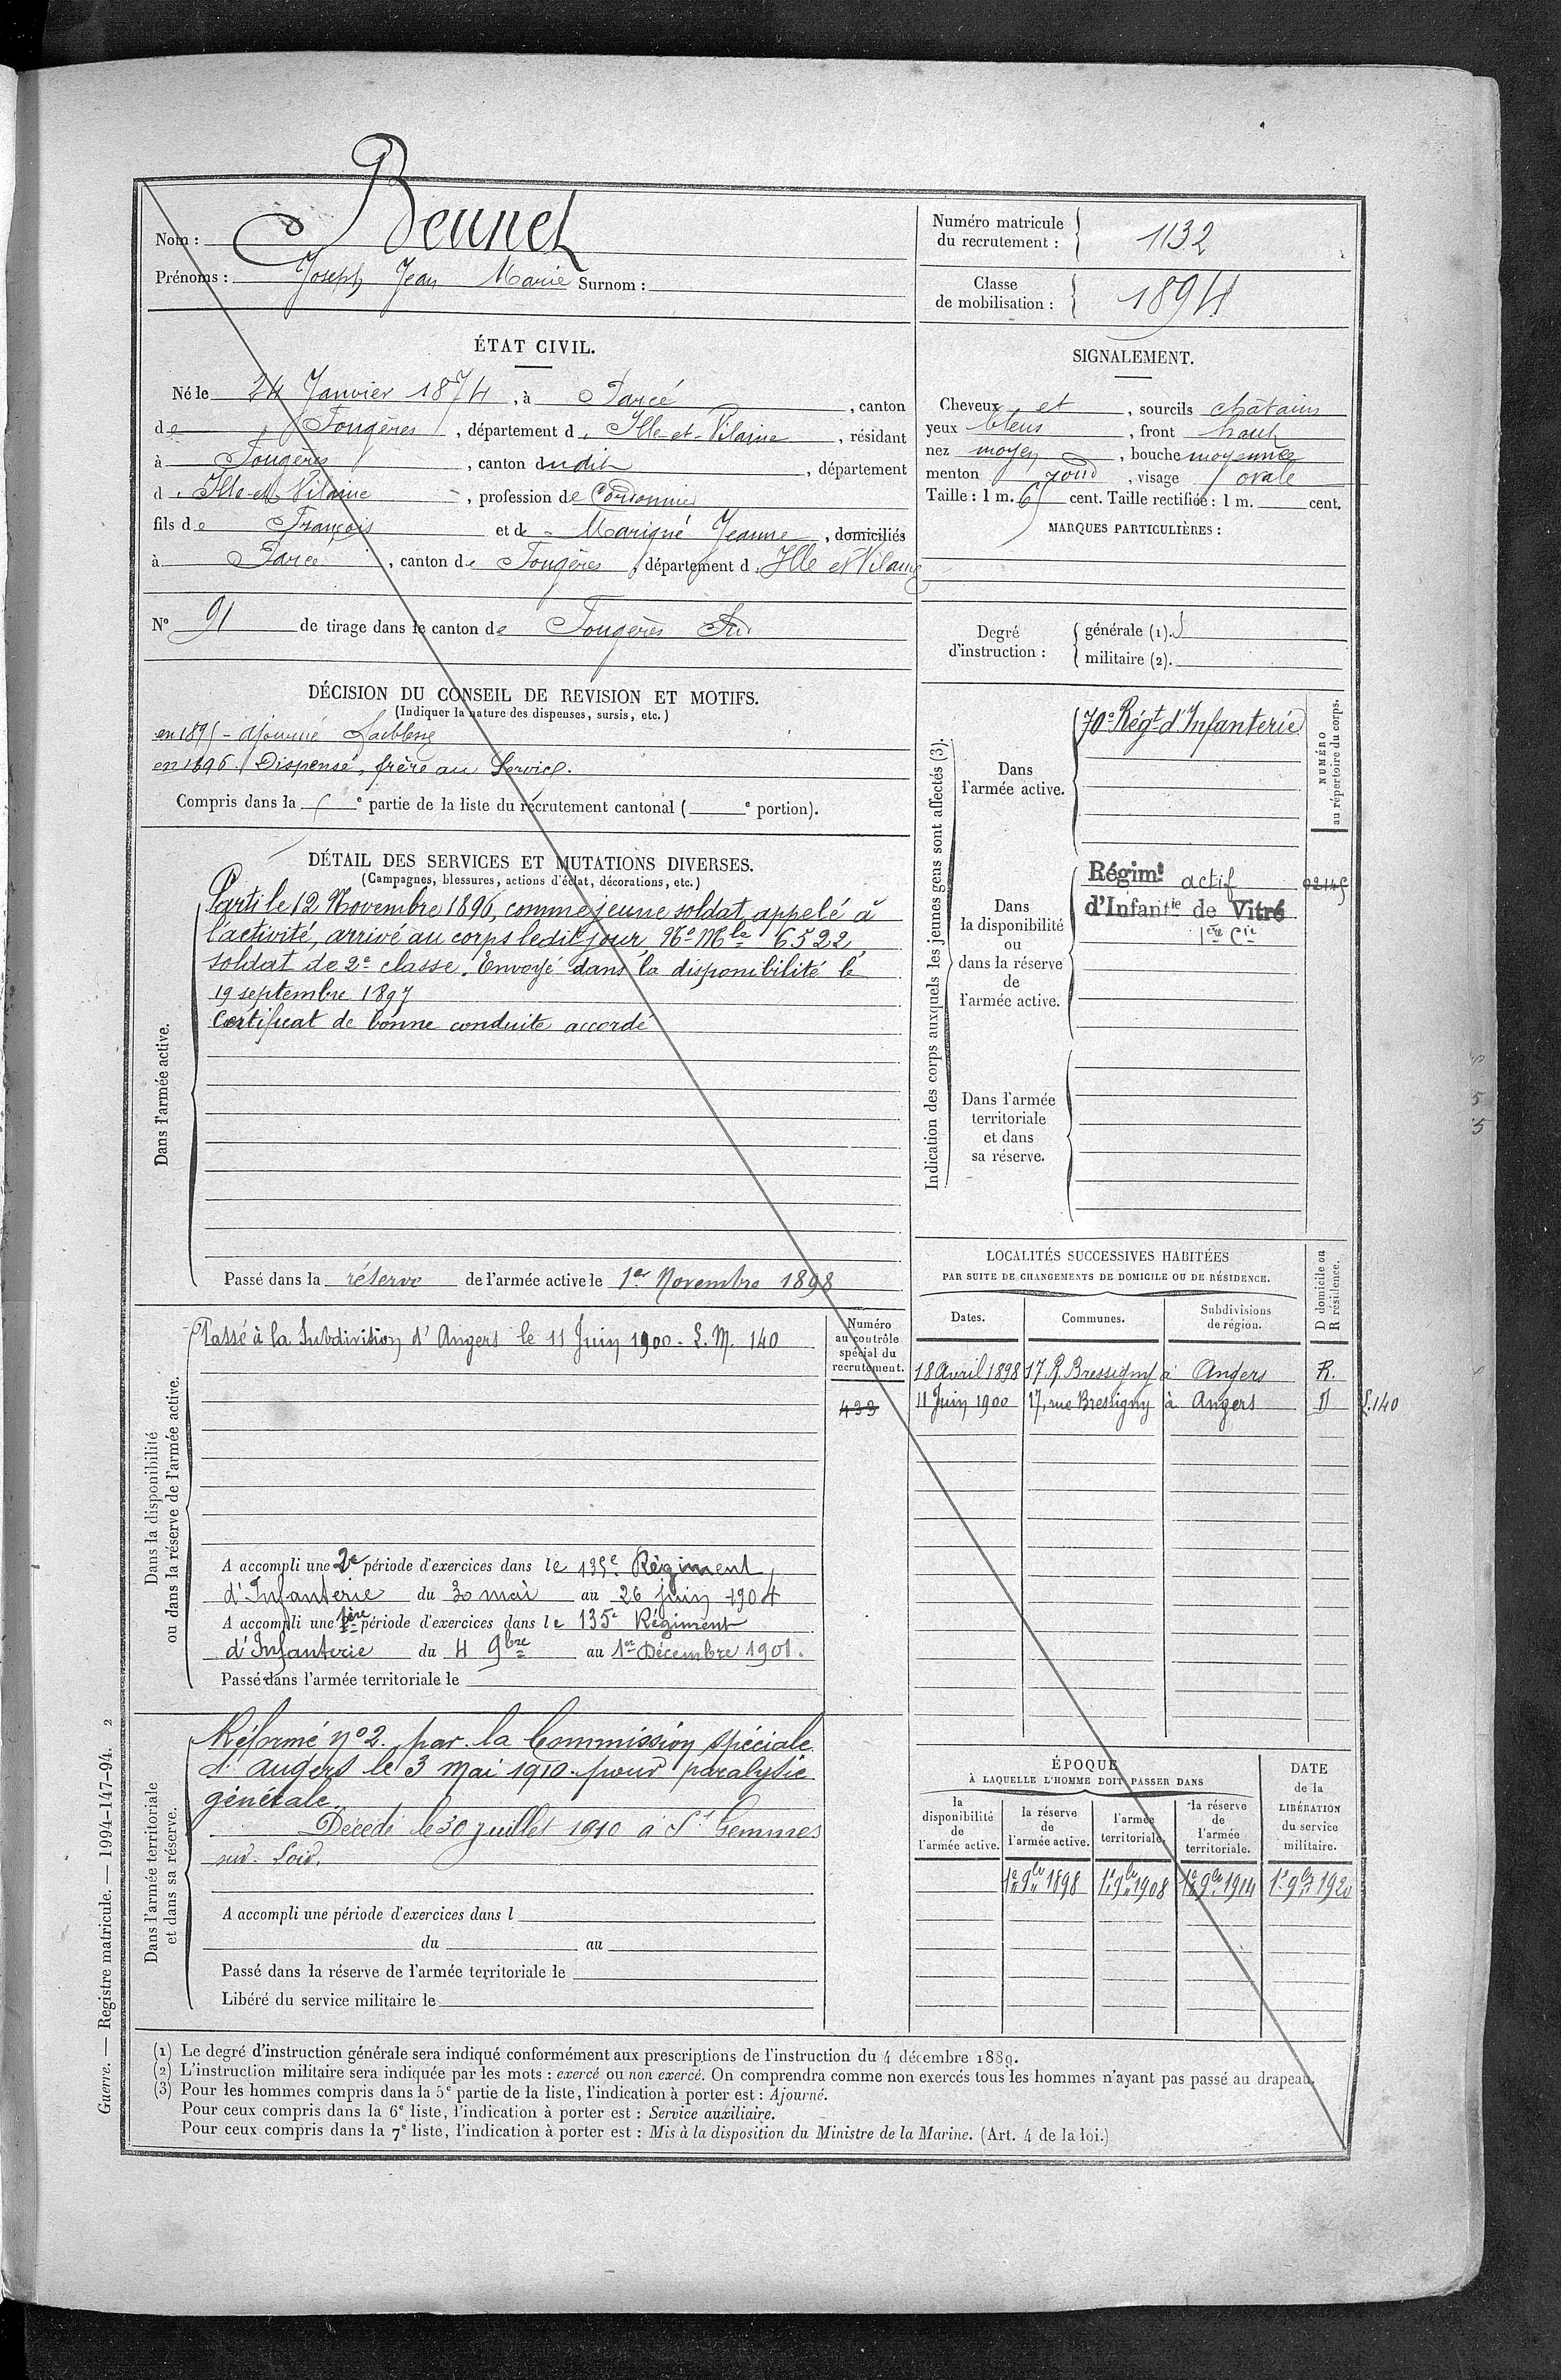 Nom : Beunel
Prénoms : Joseph Jean Marie Surnom :
Numéro matricule du recrutement : 1132
Classe de mobilisation : 1894
ÉTAT CIVIL.
Né le 24 Janvier 1874, à Parcé, canton
de Fougères, département d'Ille-et-Vilaine, résidant
à Fougères, canton dudit, département
d'Ille-et-Vilaine, profession de Cordonnier
fils de François et de Marigné Jeanne, domiciliés
à Parcé, canton de Fougères, département d'Ille et Vilaine
N° 91 de tirage dans le canton de Fougères Sud
SIGNALEMENT.
Cheveux et, sourcils châtains
yeux bleus, front haut
nez moyen, bouche moyenne
menton rond, visage ovale
Taille : 1 m. 65 cent. Taille rectifiée : 1 m. cent.
MARQUES PARTICULIÈRES :
Degré d'instruction : générale (1). 3
militaire (2).
DÉCISION DU CONSEIL DE REVISION ET MOTIFS.
(Indiquer la nature des dispenses, sursis, etc.)
en 1895 - ajourné faiblesse
en 1896. Dispensé, frère au Service.
Compris dans la e partie de la liste du recrutement cantonal ( e portion).
DÉTAIL DES SERVICES ET MUTATIONS DIVERSES.
(Campagnes, blessures, actions d'éclat, décorations, etc.)
Dans l'armée active.
Parti le 12 Novembre 1896, comme jeune soldat appelé à
l'activité, arrivé au corps ledit jour, No Mle 6522,
soldat de 2e classe. Envoyé dans la disponibilité le
19 septembre 1897
Certificat de bonne conduite accordé
Passé dans la réserve de l'armée active le 1er Novembre 1898
Indication des corps auxquels les jeunes gens sont affectés (3).
NUMÉRO au répertoire du corps.
Dans l'armée active.
70e Régt d'Infanterie
Dans la disponibilité ou dans la réserve de l'armée active.
Régimt actif
d'Infantie de Vitré
1ère Cie
Dans l'armée territoriale et dans sa réserve.
LOCALITÉS SUCCESSIVES HABITÉES
PAR SUITE DE CHANGEMENTS DE DOMICILE OU DE RÉSIDENCE.
Dates. Communes. Subdivisions de région. D domicile ou R résidence.
18 Avril 1898 17 R. Bressigny à Angers R.
11 Juin 1900 17, rue Bressigny à Angers D L.140
Dans la disponibilité
ou dans la réserve de l'armée active.
Numéro au contrôle spécial du recrutement.
433
Passé à la Subdivision d'Angers le 11 Juin 1900 - L.M. 140
A accompli une 2e période d'exercices dans le 135e Régiment
d'Infanterie du 30 mai au 26 juin 1904
A accompli une 1ère période d'exercices dans le 135e Régiment
d'Infanterie du 4 9bre au 1er Décembre 1901.
Passé dans l'armée territoriale le
Dans l'armée territoriale
et dans sa réserve.
Réformé no 2. par la Commission spéciale
d'Angers le 3 mai 1910 pour paralysie
générale.
Décédé le 30 juillet 1910 à St Gemmes
sur Loire.
A accompli une période d'exercices dans l
du au
Passé dans la réserve de l'armée territoriale le
Libéré du service militaire le
ÉPOQUE
À LAQUELLE L'HOMME DOIT PASSER DANS
la disponibilité de l'armée active.
la réserve de l'armée active.
l'armée territoriale.
la réserve de l'armée territoriale.
DATE de la LIBÉRATION du service militaire.
1er 9bre 1898 1er 9bre 1908 1er 9bre 1914 1er 9bre 1920
(1) Le degré d'instruction générale sera indiqué conformément aux prescriptions de l'instruction du 4 décembre 1889.
(2) L'instruction militaire sera indiquée par les mots : exercé ou non exercé. On comprendra comme non exercés tous les hommes n'ayant pas passé au drapeau.
(3) Pour les hommes compris dans la 5e partie de la liste, l'indication à porter est : Ajourné.
Pour ceux compris dans la 6e liste, l'indication à porter est : Service auxiliaire.
Pour ceux compris dans la 7e liste, l'indication à porter est : Mis à la disposition du Ministre de la Marine. (Art. 4 de la loi.)
Guerre. — Registre matricule. — 1994-147-94. 2